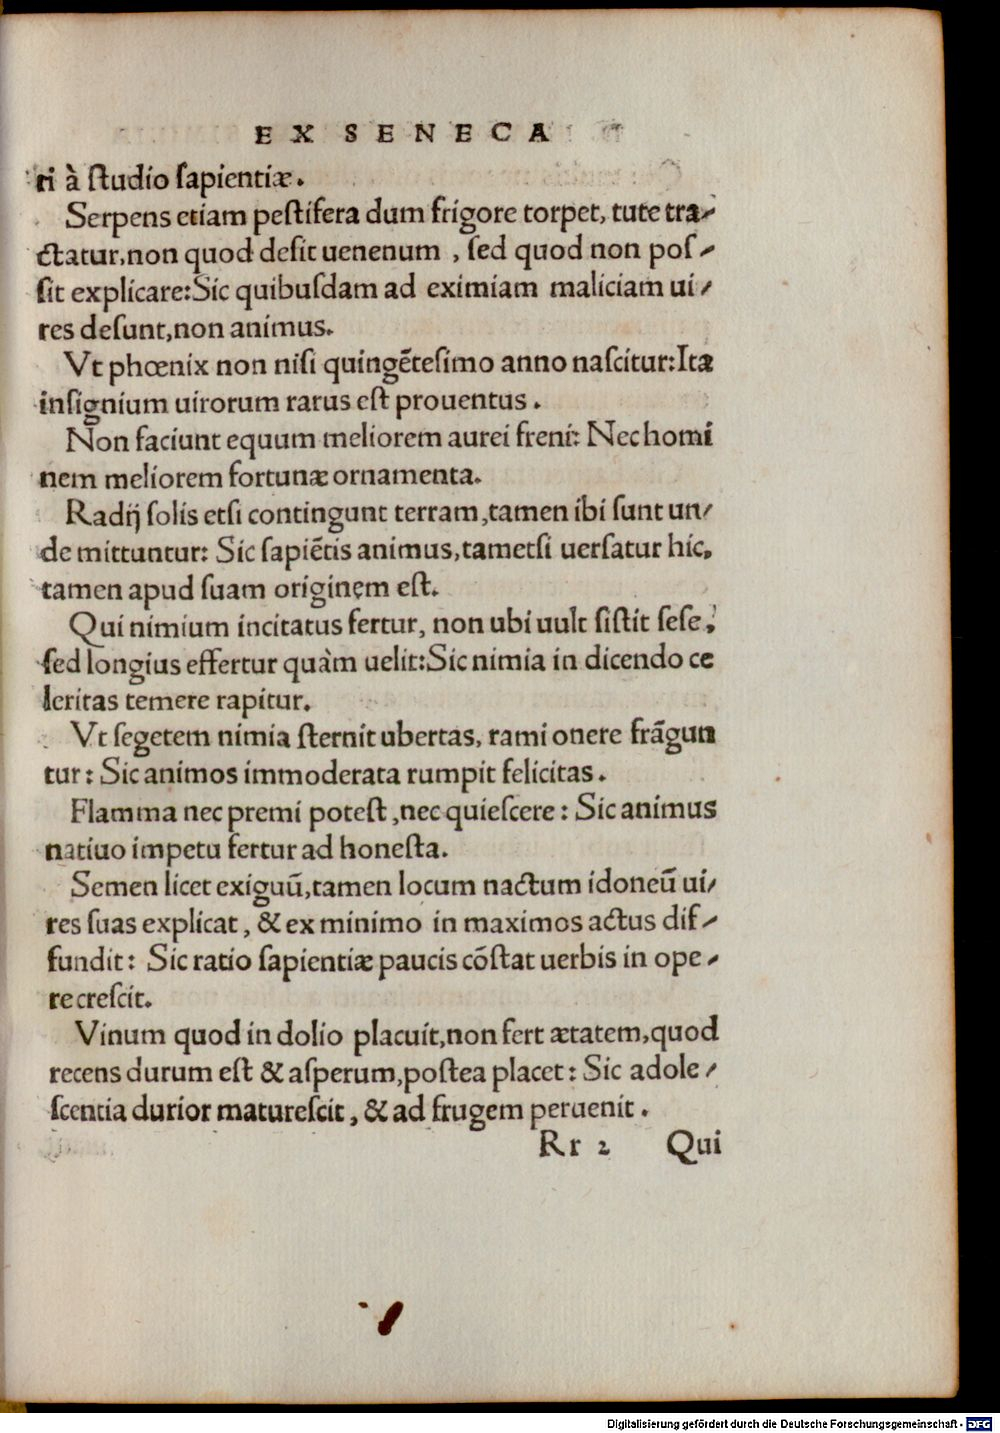 EX SENECA
ri à ſtudio ſapientiæ.
Serpens etiam peſtifera dum frigore torpet, tute tra-
ctatur, non quod deſit uenenum, ſed quod non poſ-
ſit explicare: Sic quibuſdam ad eximiam maliciam ui-
res deſunt, non animus.
Vt phœnix non niſi quingēteſimo anno naſcitur: Ita
inſignium uirorum rarus eſt prouentus.
Non faciunt equum meliorem aurei freni: Nec homi
nem meliorem fortunæ ornamenta.
Radij ſolis etſi contingunt terram, tamen ibi ſunt un-
de mittuntur: Sic ſapiētis animus, tametſi uerſatur hic,
tamen apud ſuam originem eſt.
Qui nimium incitatus fertur, non ubi uult ſiſtit ſeſe,
ſed longius effertur quàm uelit: Sic nimia in dicendo ce
leritas temere rapitur.
Vt ſegetem nimia ſternit ubertas, rami onere frāgun
tur: Sic animos immoderata rumpit felicitas.
Flamma nec premi poteſt, nec quieſcere: Sic animus
natiuo impetu fertur ad honeſta.
Semen licet exiguū, tamen locum nactum idoneū ui-
res ſuas explicat, & ex minimo in maximos actus dif-
fundit: Sic ratio ſapientiæ paucis cōſtat uerbis in ope-
re creſcit.
Vinum quod in dolio placuit, non fert ætatem, quod
recens durum eſt & aſperum, poſtea placet: Sic adole-
ſcentia durior matureſcit, & ad frugem peruenit.
Rr 2 Qui
Digitalisierung gefördert durch die Deutsche Forschungsgemeinschaft - DFG